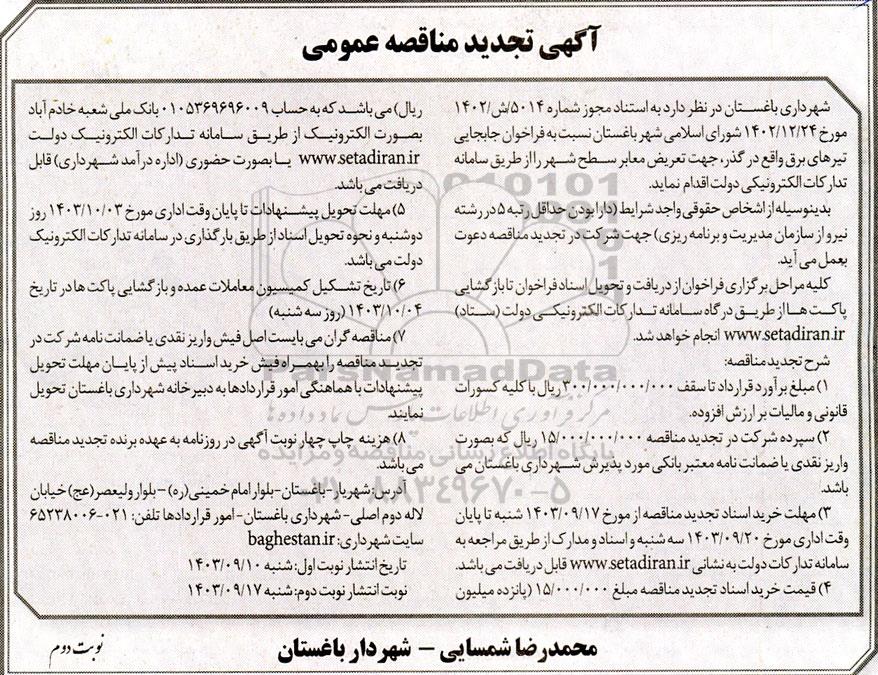 آگهی تجدید مناقصه عمومی
شهرداری باغستان در نظر دارد به استناد مجوز شماره ۵۰۱۴/ش/۱۴۰۲
مورخ ۱۴۰۲/۱۲/۲۴ شورای اسلامی شهر باغستان نسبت به فراخوان جابجایی
تیرهای برق واقع در گذر، جهت تعریض معابر سطح شهر را از طریق سامانه
تدارکات الکترونیکی دولت اقدام نماید.
بدینوسیله از اشخاص حقوقی واجد شرایط (دارا بودن حداقل رتبه ۵ در رشته
نیرو از سازمان مدیریت و برنامه ریزی) جهت شرکت در تجدید مناقصه دعوت
بعمل می آید.
کلیه مراحل برگزاری فراخوان از دریافت و تحویل اسناد فراخوان تا بازگشایی
پاکت ها از طریق درگاه سامانه تدارکات الکترونیکی دولت (ستاد)
www.setadiran.ir انجام خواهد شد.
شرح تجدید مناقصه:
۱) مبلغ برآورد قرارداد تا سقف ۳۰۰/۰۰۰/۰۰۰/۰۰۰ ریال با کلیه کسورات
قانونی و مالیات بر ارزش افزوده.
۲) سپرده شرکت در تجدید مناقصه ۱۵/۰۰۰/۰۰۰/۰۰۰ ریال که بصورت
واریز نقدی یا ضمانت نامه معتبر بانکی مورد پذیرش شهرداری باغستان می
باشد.
۳) مهلت خرید اسناد تجدید مناقصه از مورخ ۱۴۰۳/۰۹/۱۷ شنبه تا پایان
وقت اداری مورخ ۱۴۰۳/۰۹/۲۰ سه شنبه و اسناد و مدارک از طریق مراجعه به
سامانه تدارکات دولت به نشانی www.setadiran.ir قابل دریافت می باشد.
۴) قیمت خرید اسناد تجدید مناقصه مبلغ ۱۵/۰۰۰/۰۰۰ (پانزده میلیون
ریال) می باشد که به حساب ۰۱۰۵۳۶۹۶۹۶۰۰۹ بانک ملی شعبه خادم آباد
بصورت الکترونیک از طریق سامانه تدارکات الکترونیک دولت
www.setadiran.ir یا بصورت حضوری (اداره درآمد شهرداری) قابل
دریافت می باشد.
۵) مهلت تحویل پیشنهادات تا پایان وقت اداری مورخ ۱۴۰۳/۱۰/۰۳ روز
دوشنبه و نحوه تحویل اسناد از طریق بارگذاری در سامانه تدارکات الکترونیک
دولت می باشد.
۶) تاریخ تشکیل کمیسیون معاملات عمده و بازگشایی پاکت ها در تاریخ
۱۴۰۳/۱۰/۰۴ (روز سه شنبه)
۷) مناقصه گران می بایست اصل فیش واریز نقدی یا ضمانت نامه شرکت در
تجدید مناقصه را بهمراه فیش خرید اسناد پیش از پایان مهلت تحویل
پیشنهادات با هماهنگی امور قراردادها به دبیرخانه شهرداری باغستان تحویل
نمایند.
۸) هزینه چاپ چهار نوبت آگهی در روزنامه به عهده برنده تجدید مناقصه
می باشد.
آدرس: شهریار-باغستان-بلوار امام خمینی(ره)-بلوار ولیعصر(عج) خیابان
لاله دوم اصلی-شهرداری باغستان-امور قراردادها تلفن: ۰۲۱-۶۵۲۳۸۰۰۶
سایت شهرداری: baghestan.ir
تاریخ انتشار نوبت اول: شنبه ۱۴۰۳/۰۹/۱۰
نوبت انتشار نوبت دوم: شنبه ۱۴۰۳/۰۹/۱۷
محمدرضا شمسایی – شهردار باغستان
نوبت دوم
ParsNamadData
پایگاه اطلاع رسانی مناقصه و مزایده
۰۲۱-۸۸۳۴۹۶۷۰-۵